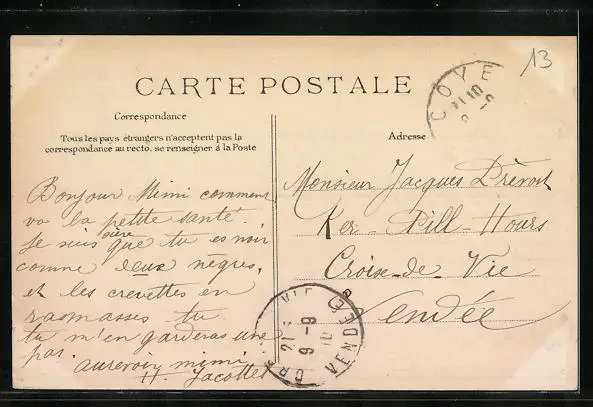 13
CARTE POSTALE
Correspondance
Tous les pays étrangers n'acceptent pas la
correspondance au recto, se renseigner à la Poste
Bonjour Mimi comment
va la petite santé.
Je suis sûre que tu es noir
comme deux nègres,
et les crevettes en
ramasses tu
tu m'en garderas une
pas.
aurevoir mimi
H. Jacottet
Adresse
Monsieur Jacques Prévost
Ker-Pill-Hours
Croix-de-Vie
Vendée
COYE
VIE
VENDEE
21
9-9
10